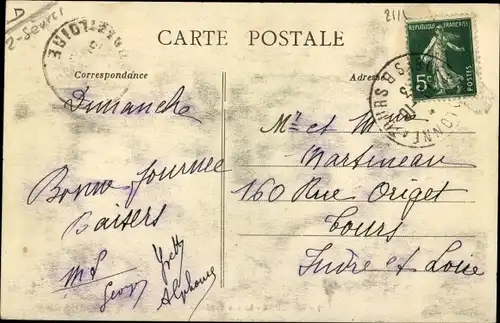 D
2-Sèvres
2111
CARTE POSTALE
REPUBLIQUE FRANÇAISE
5c
POSTES
Correspondance
Adresse
Dimanche
Mr et Mme
Martineau
Bonne Journée
160 Rue Origet
Baisers
Tours
Indre et Loire
ML
Yvette
Georges
Alphonse